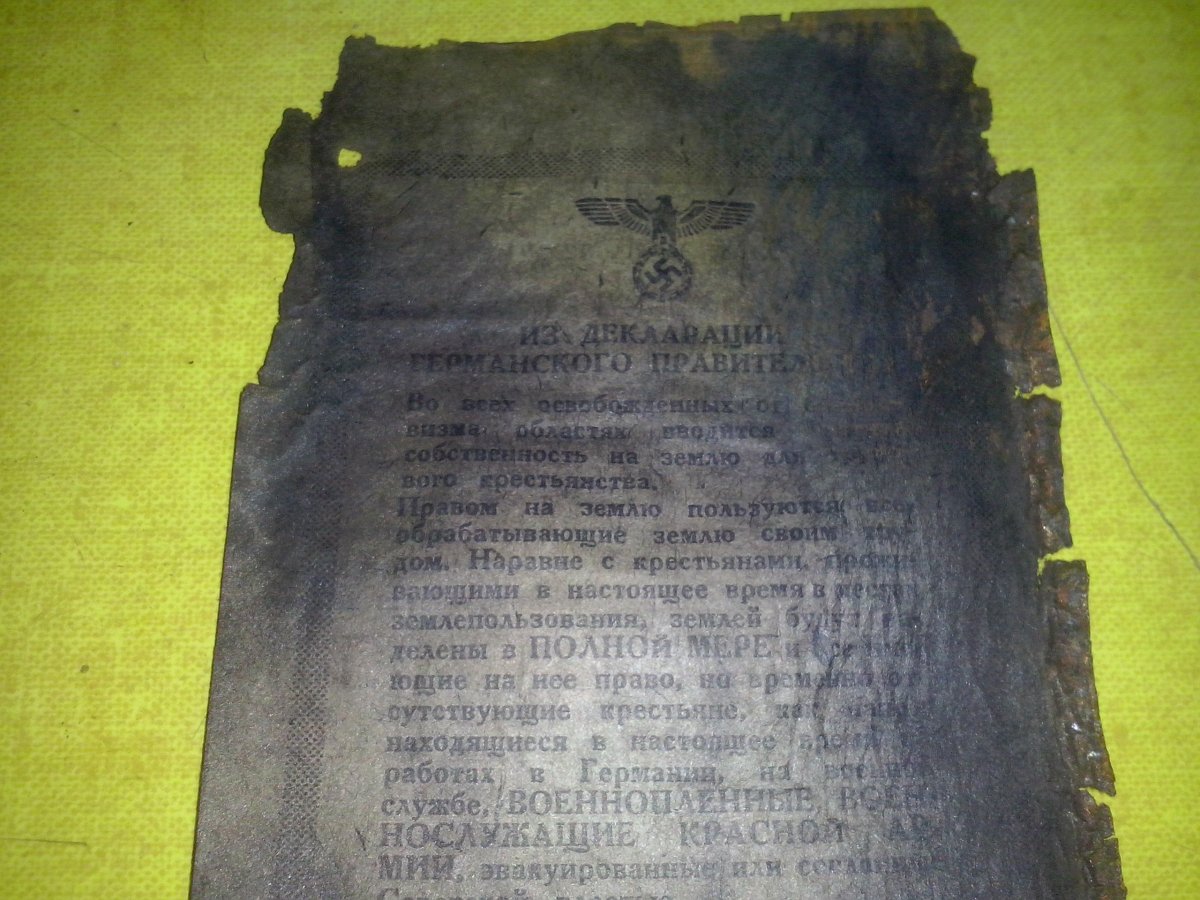 ИЗ ДЕКЛАРАЦИИ
ГЕРМАНСКОГО ПРАВИТЕЛ
Во всех освобожденных от
визма областях вводится
собственность на землю для
вого крестьянства.
Правом на землю пользуются все,
обрабатывающие землю своим тру-
дом. Наравне с крестьянами, прожи-
вающими в настоящее время в местах
землепользования, землей будут на-
делены в ПОЛНОЙ МЕРЕ и все
ющие на нее право, но временно от-
сутствующие крестьяне, как
находящиеся в настоящее время
работах в Германии, на военной
службе, ВОЕННОПЛЕННЫЕ ВОЕН-
НОСЛУЖАЩИЕ КРАСНОЙ АР-
МИИ, эвакуированные или сосланные
Советской властью